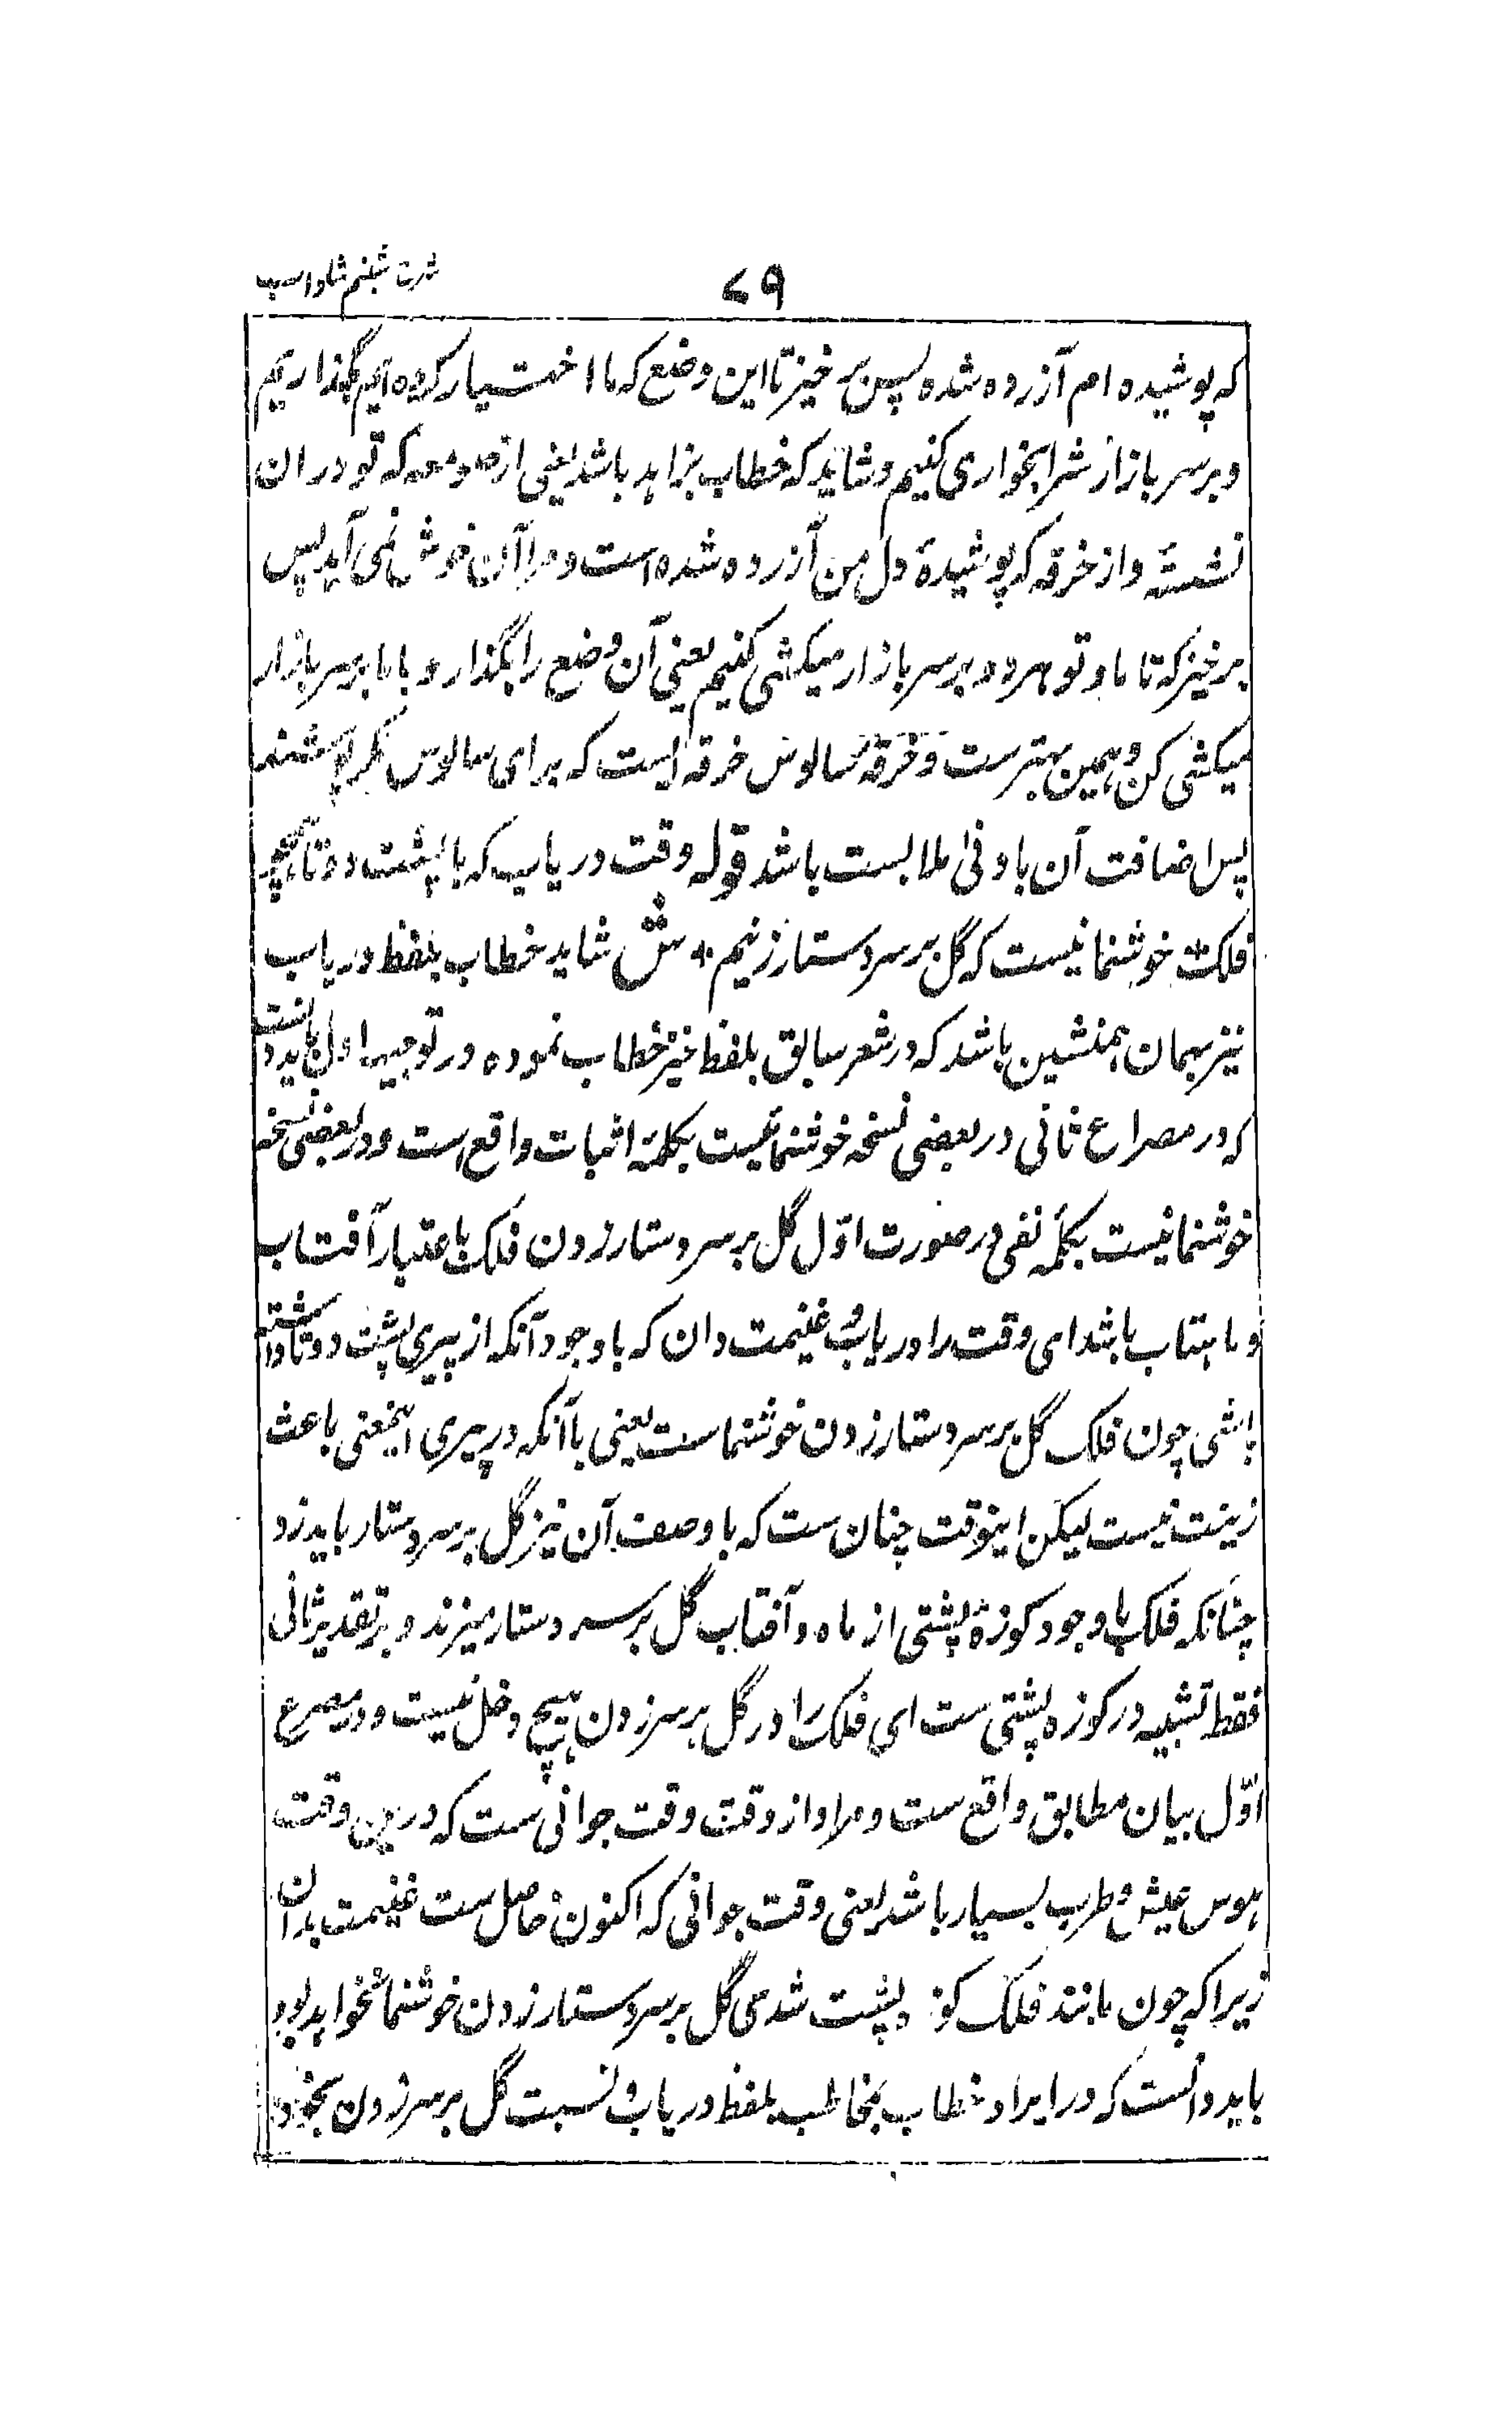 ۷۹
شرح شبنم شاداب
که پوشیده ام آزرده شده پس برخیز تا این وضع که ما اختیار کرده ایم بگذاریم
و بر سر بازار شرابخواری کنیم و شاید که خطاب بزاهد باشد یعنی از صومعه که تو در ان
نشسته و از خرقه که پوشیدهٔ دل من آزرده شده است و مرا آن خوش نمی آید پس
برخیز که تا ما و تو هر دو بر سر بازار میکشی کنیم یعنی آن وضع را بگذار و با ما بر سر بازار
میکشی کن و همین بهتر ست و خرقه سالوس خرقه ایست که برای سالوس
پس اضافت آن بادنی ملابست باشد قوله وقت دریاب که با پشت دوتا همچو
فلک * خوشنما نیست که گل بر سر دستار زنیم * ش شاید خطاب بلفظ دریاب
نیز بهمان همنشین باشد که در شعر سابق بلفظ خیز خطاب نموده در توجیه اول باید دانست
که در مصراع ثانی در بعضی نسخه خوشنمائیست بکلمهٔ اثبات واقع است و در بعضی نسخه
خوشنما نیست بکلمهٔ نفی در صورت اوّل گل بر سر دستار زدن فلک باعتبار آفتاب
و ماهتاب باشد ای وقت را دریاب و غنیمت دان که باوجود آنکه از پیری پشت دوتا داشته
باشی چون فلک گل بر سر دستار زدن خوشنماست یعنی با آنکه در پیری اینمعنی باعث
زینت نیست لیکن اینوقت چنان ست که با وصف آن نیز گل بر سر دستار باید زد
چنانکه فلک باوجود کوزهٔ پشتی از ماه و آفتاب گل بر سر دستار میزند و بر تقدیر ثانی
فقط تشبیه در کوزه پشتی ست ای فلک را در گل بر سر زدن هیچ دخل نیست و در مصرع
اوّل بیان مطابق واقع ست و مراد از وقت وقت جوانی ست که درین وقت
هوس عیش و طرب بسیار باشد یعنی وقت جوانی که اکنون حاصل ست غنیمت بدان
زیرا که چون مانند فلک کوز پشت شدی گل بر سر دستار زدن خوشنما نخواهد بود
باید دانست که در ایراد خطاب بمخاطب بلفظ دریاب و نسبت گل بر سر زدن بخود